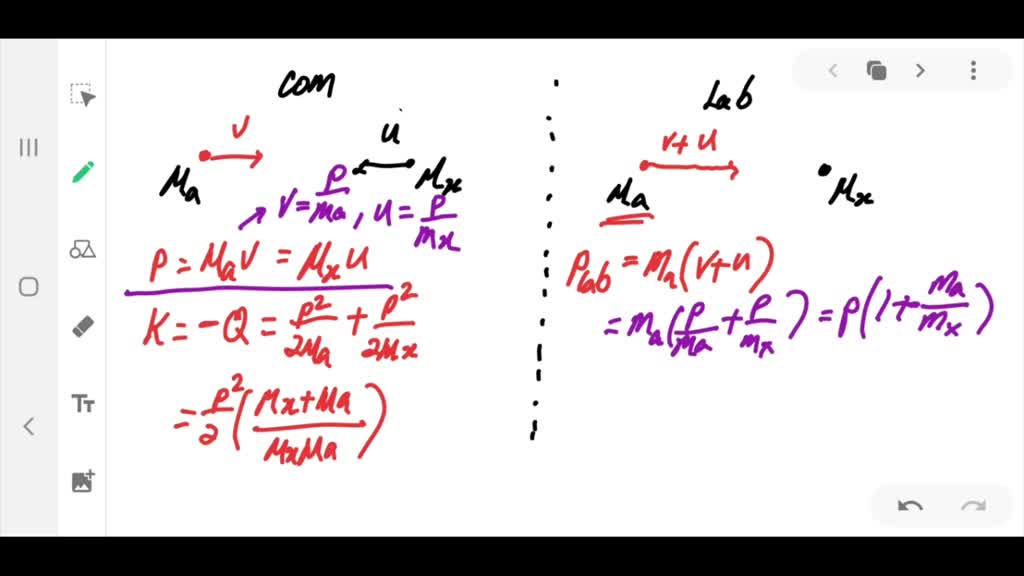 COM
V
u
Ma
Mx
V = P/Ma , u = P/mx
P = MaV = Mxu
K = -Q = P²/2Ma + P²/2Mx
= P²/2 (Mx+Ma/MxMa)
Lab
V+u
Ma
Mx
Plab = ma(V+u)
= ma(P/Ma + P/mx) = P(1+ma/mx)
Tт